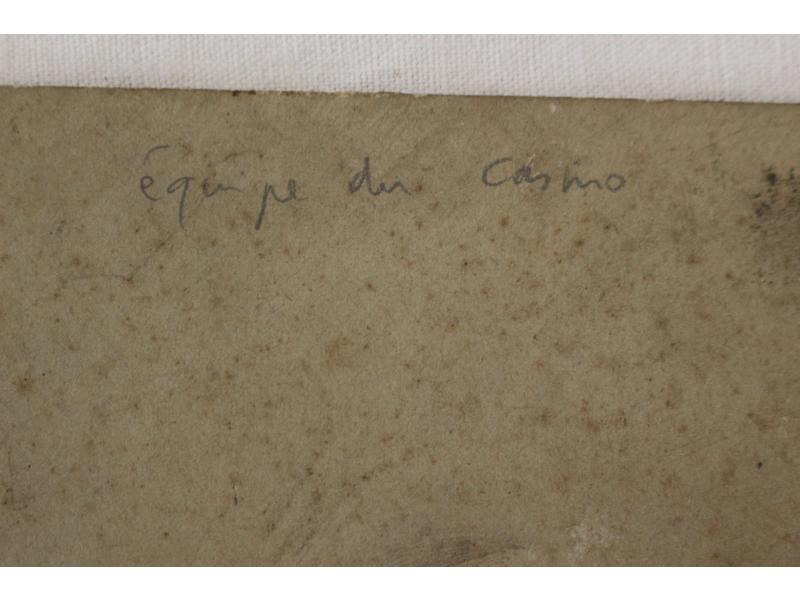 équipe du Casino